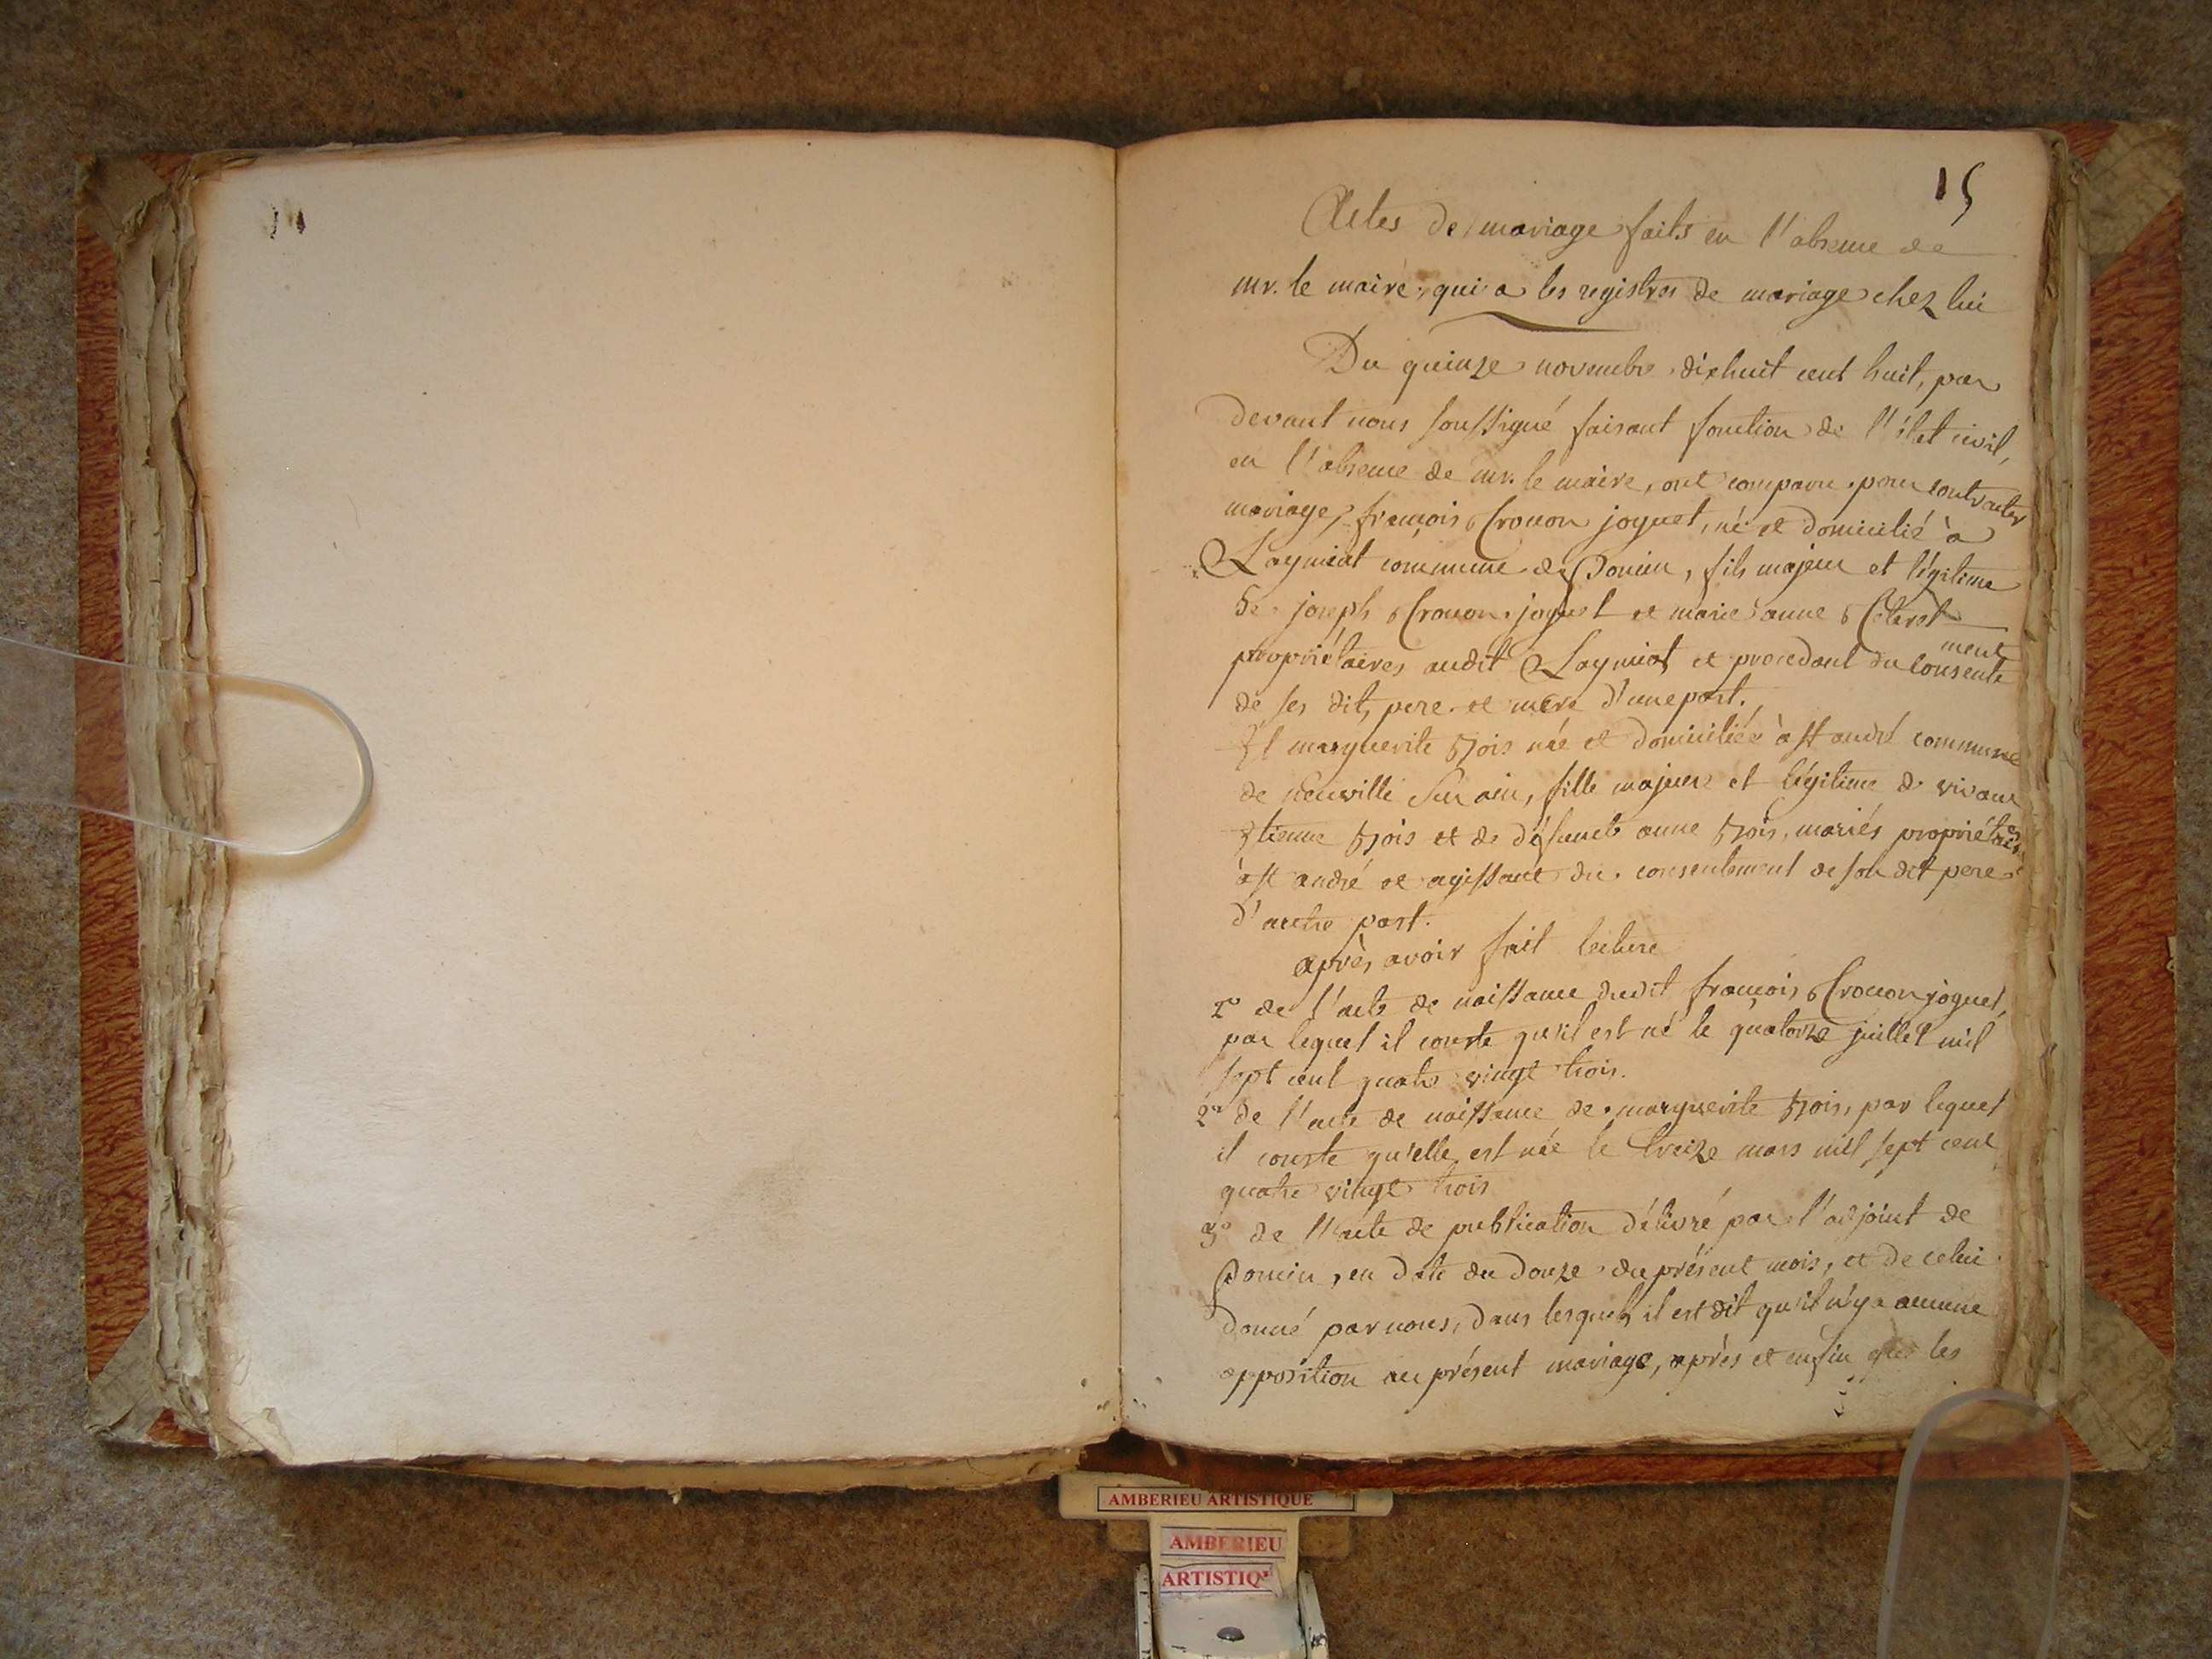 14
15
Actes de mariage faits en l'absence de
mr. le maire, qui a les registres de mariage chez lui
Du quinze novembre dixhuit cent huit, par
devant nous soussigné faisant fonction de l'état civil,
en l'absence de mr. le maire, ont comparu pour contracter
mariage, françois joguet, né et domicilié à
commune de Poncin, fils majeur et légitime
de joseph joguet et marie anne
propriétaires audit et procedant du consente
ment
de ses dits pere et mere d'une part.
Et marguerite née et domiciliée à st andré commune
de neuville sur ain, fille majeure et légitime de vivant
Etienne et de défuncte anne mariés propriétaires
à st andré et agissant du consentement de son dit pere
d'autre part.
après avoir fait lecture
1º de l'acte de naissance dudit françois joguet,
par lequel il conste qu'il est né le quatorze juillet mil
sept cent quatre vingt trois.
2º de l'acte de naissance de marguerite par lequel
il conste qu'elle est née le treize mars mil sept cent
quatre vingt trois
3º de l'acte de publication délivré par l'adjoint de
Poncin, en date du douze du présent mois, et de celui
donné par nous, dans lesquels il est dit qu'il n'y a aucune
opposition au présent mariage, après et enfin que les
AMBERIEU ARTISTIQUE
AMBERIEU
ARTISTIQ